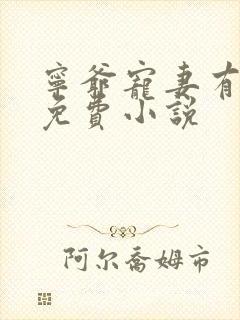 寧爺寵妻有
免費小說
阿尔喬姆市